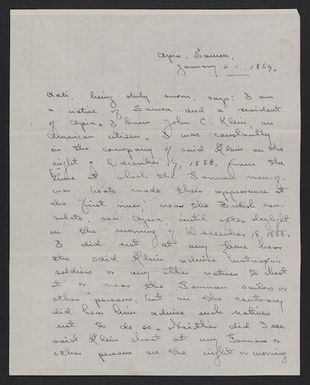 Apia, Samoa,
January 2, 1889.
Lati being duly sworn, says: I am
a native of Samoa and a resident
of Apia. I know John C. Klein an
American citizen. I was constantly
in the company of said Klein on the
night of December 17, 1888, from the
time at which the German men-of-
war boats made their appearance at
the first river near the British con-
sulate near Apia until after daylight
on the morning of December 18, 1888.
I did not at any time hear
the said Klein advise Mataafa's
soldiers or any other natives to shoot
at or near the German sailors or
other persons, but on the contrary
did hear him advise such natives
not to do so. Neither did I see
said Klein shoot at any Germans or
other persons on the night or morning